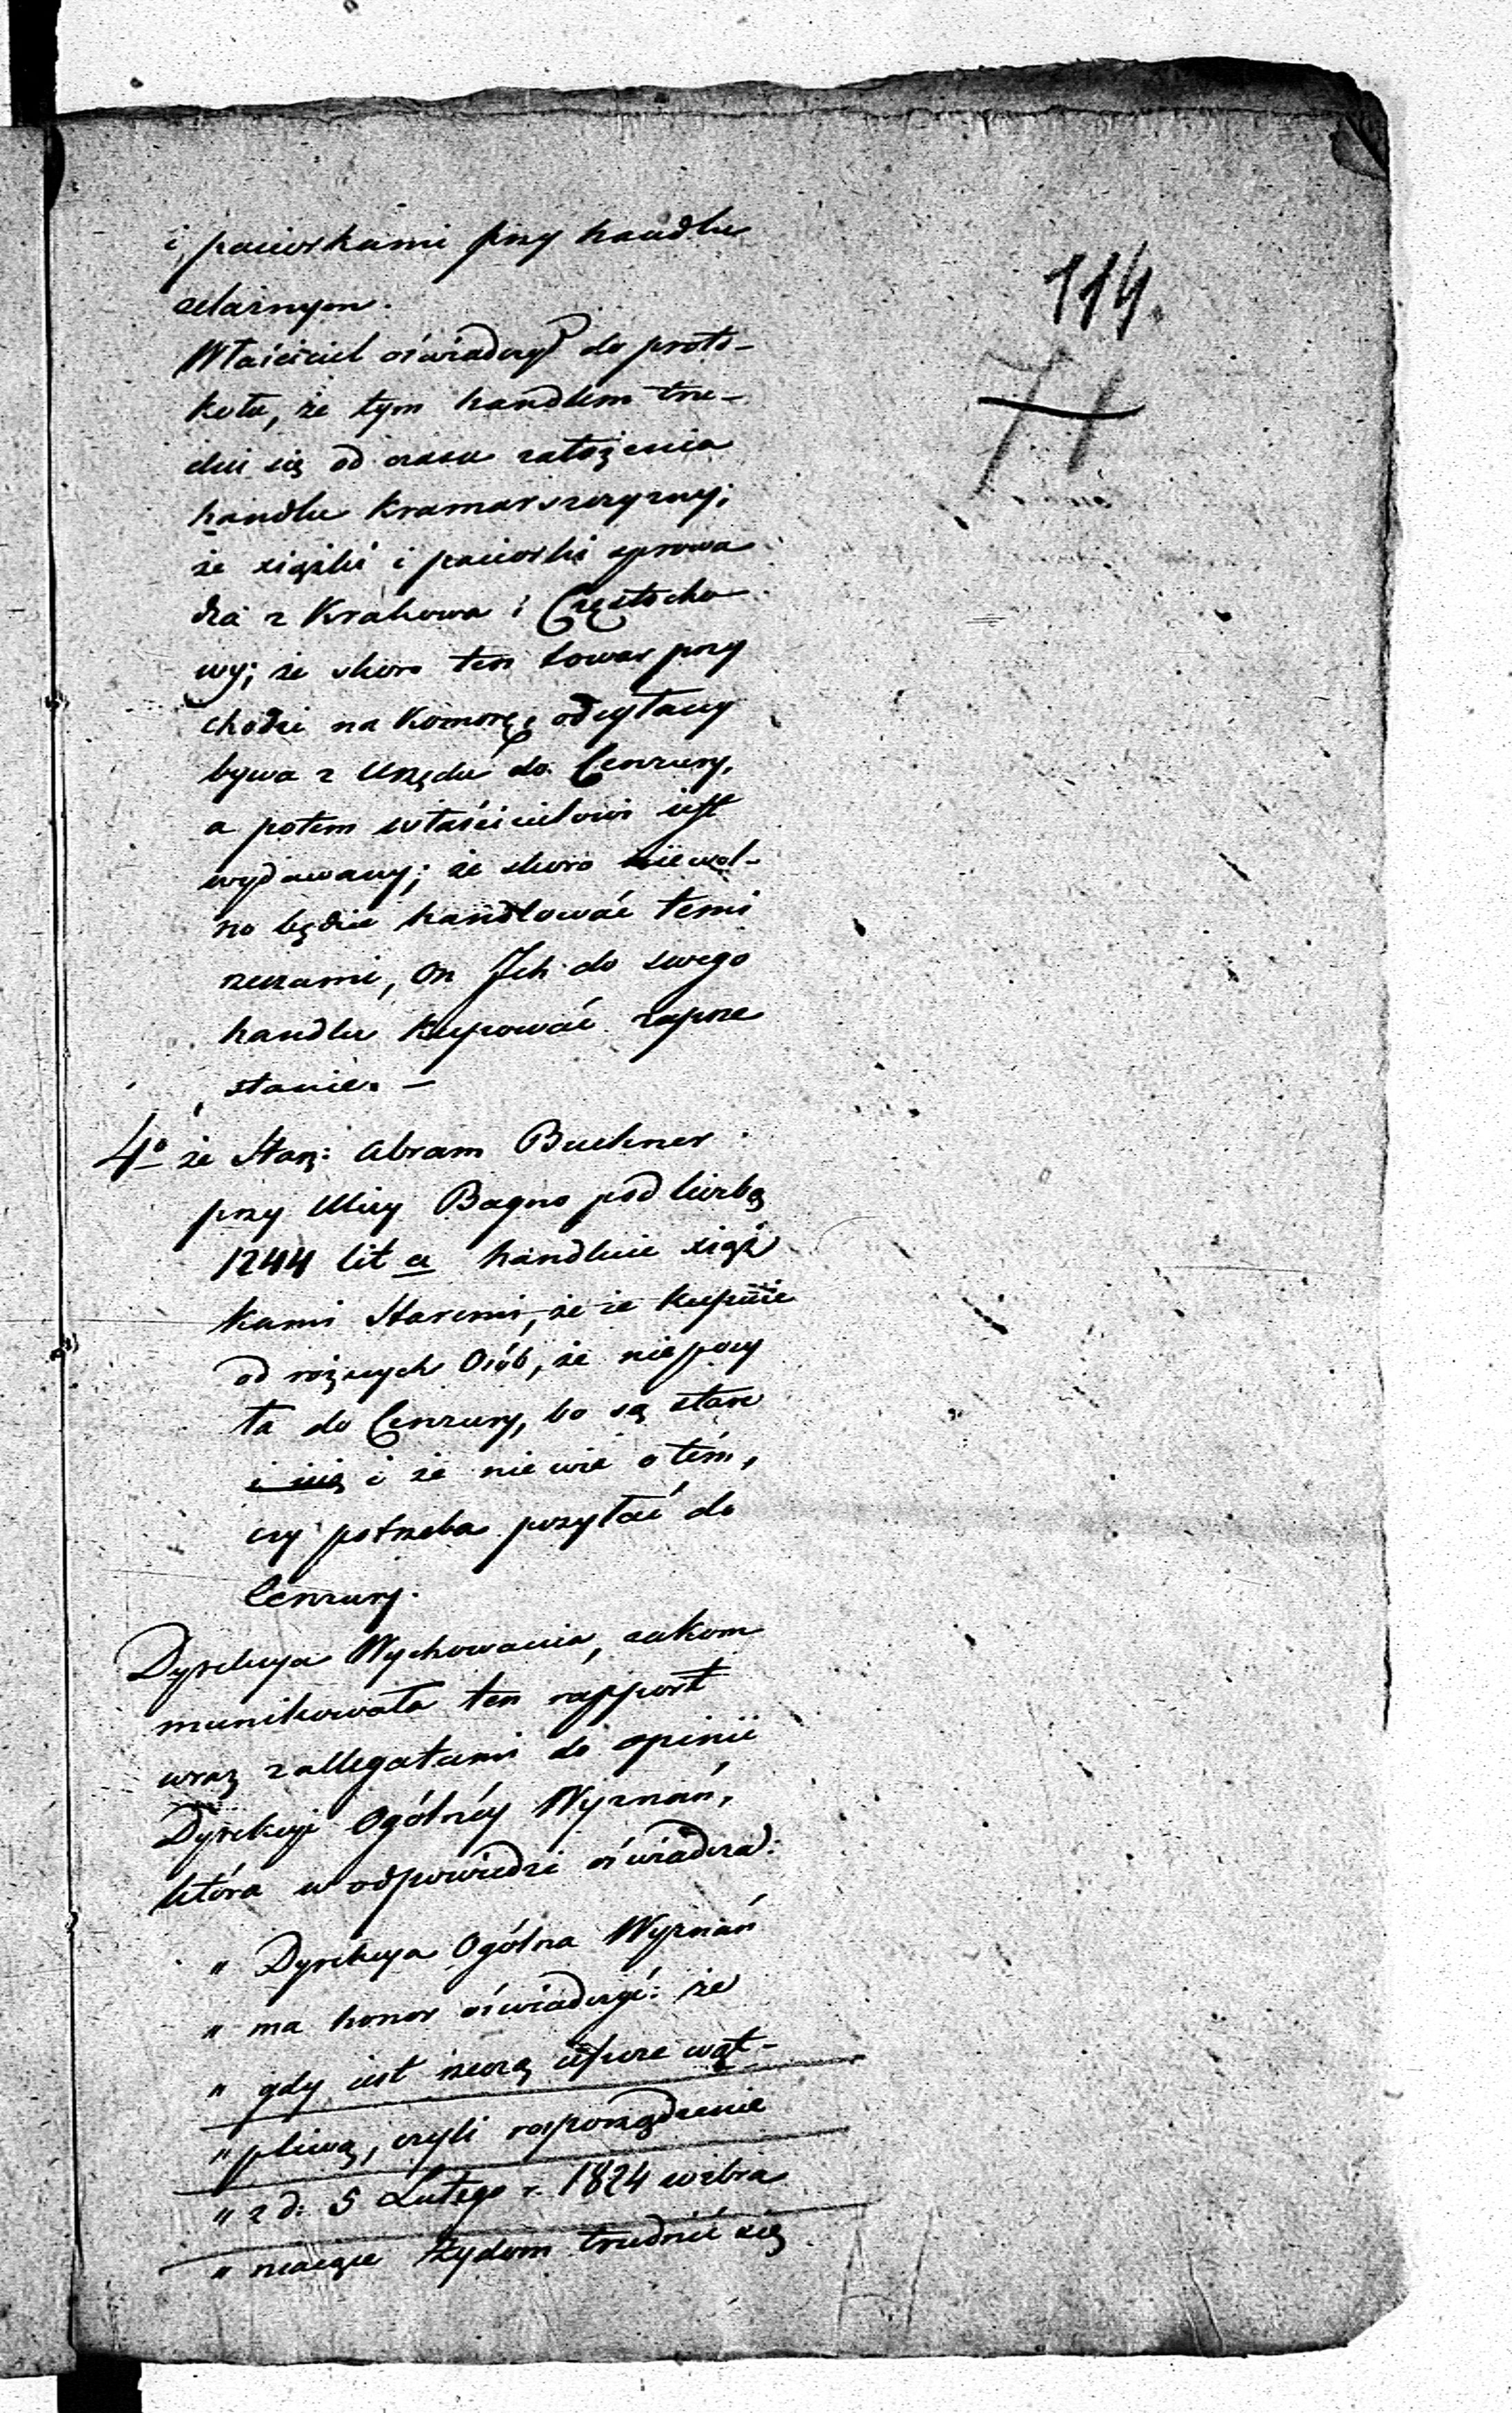 i paciorkami przy handlu
żelaznym.
Właściciel oświadczył do proto-
kołu, że tym handlem tru-
dni się od czasu założenia
handlu kramarszczyzny;
że xiążki i paciorki sprowa
dza z Krakowa i Częstocho
wy; że skoro ten towar przy
chodzi na Komorę, odsyłany
bywa z Urzędu do Cenzury,
a potem właścicielowi iest
wydawany; że skoro niewol-
no będzie handlować temi
rzeczami, on Ich do swego
handlu kupować zaprze
stanie. —
4o że Starz: Abram Buchner
przy Ulicy Bagno pod liczbą
1244 lit a handluie xiąż
kami Staremi, że ie kupuie
od rożnych Osób, że nie posy
ła do Cenzury, bo są stare
i że nie wie o tém,
czy potrzeba posyłać do
Cenzury.
Dyrekcya Wychowania, zakom
munikowała ten rapport
wraz z allegatami do opinii
Dyrekcyi Ogólnéy Wyznań,
która w odpowiedzi oświadcza:
" Dyrekcya Ogólna Wyznań
" ma honor oświadczyć: że
" gdy iest rzeczą ieszcze wąt-
" pliwą, czyli rozporządzenie
" z d: 5 Lutego r. 1824 wzbra
" niaiące Żydom trudnić się
114.
71